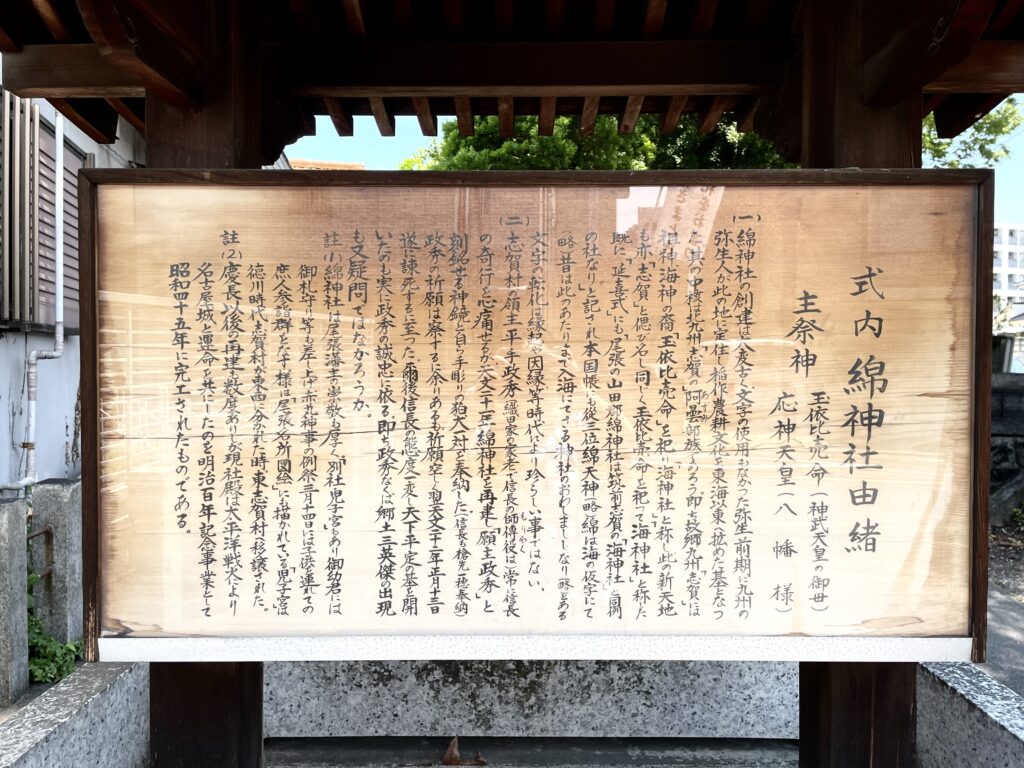 式内 綿神社由緒
主祭神
玉依比売命(神武天皇の御母)
応神天皇(八幡様)
(一)綿神社の創建は八友古く文字の使用おぼつかない弥生前期に九州の
弥生人が此の地に定住し稲作農耕文化を東海以東へ拡めた基となつ
た其の中核は九州志賀の「阿曇部族」であろう即ち故郷九州「志賀」には
祖神海神の裔「玉依比売命」を祀り「海神社」と称へ此の新天地
も亦「志賀」と偲び名し同じく玉依比売命を祀って「海神社」と称した
既に「延喜式」にも「尾張の山田郡綿神社は筑前志賀の「海神社」と同例
の社なり」と記され本国帳にも「従三位綿天神」略綿は海の仮字にて
略昔は此のあたりまで入海にてさる神社のおわしまししなり略とある
文字の転化は縁起や因縁等時代により珍らしい事ではない。
(二)志賀村の領主平手政秀(織田家の家老で信長の師傅役)は常に信長
の奇行を心痛せるか天文二十一年綿神社を再建し「願主政秀」と
刻銘せる神鏡と自らの手彫りの狛犬一対を奉納した(信長も槍先一穂奉納)
政秀の祈願は察するに余りあるも祈願空しく翌天文二十二年正月十三日
遂に諌死するに至った 爾後信長の態度一変し天下平定の基を開
いたのも実に政秀の誠忠に依る即ち政秀なくば郷土三英傑の出現
も又疑問ではなかろうか。
註(1)綿神社は尾張藩士の崇敬も厚く「別社児子宮」もあり御幼君には
御札守り等も差し上げ赤丸神事の例祭三月十四日には子供連れの
庶人参詣群をなす様は「尾張名所図絵」にも描かれている児子宮は
徳川時代志賀村が東西に分かれた時東志賀村へ移譲された。
註(2)慶長以後の再建は数度あり(現社殿は太平洋戦火により
名古屋城と運命を共にしたのを明治百年記念事業として
昭和四十五年に完工されたものである。